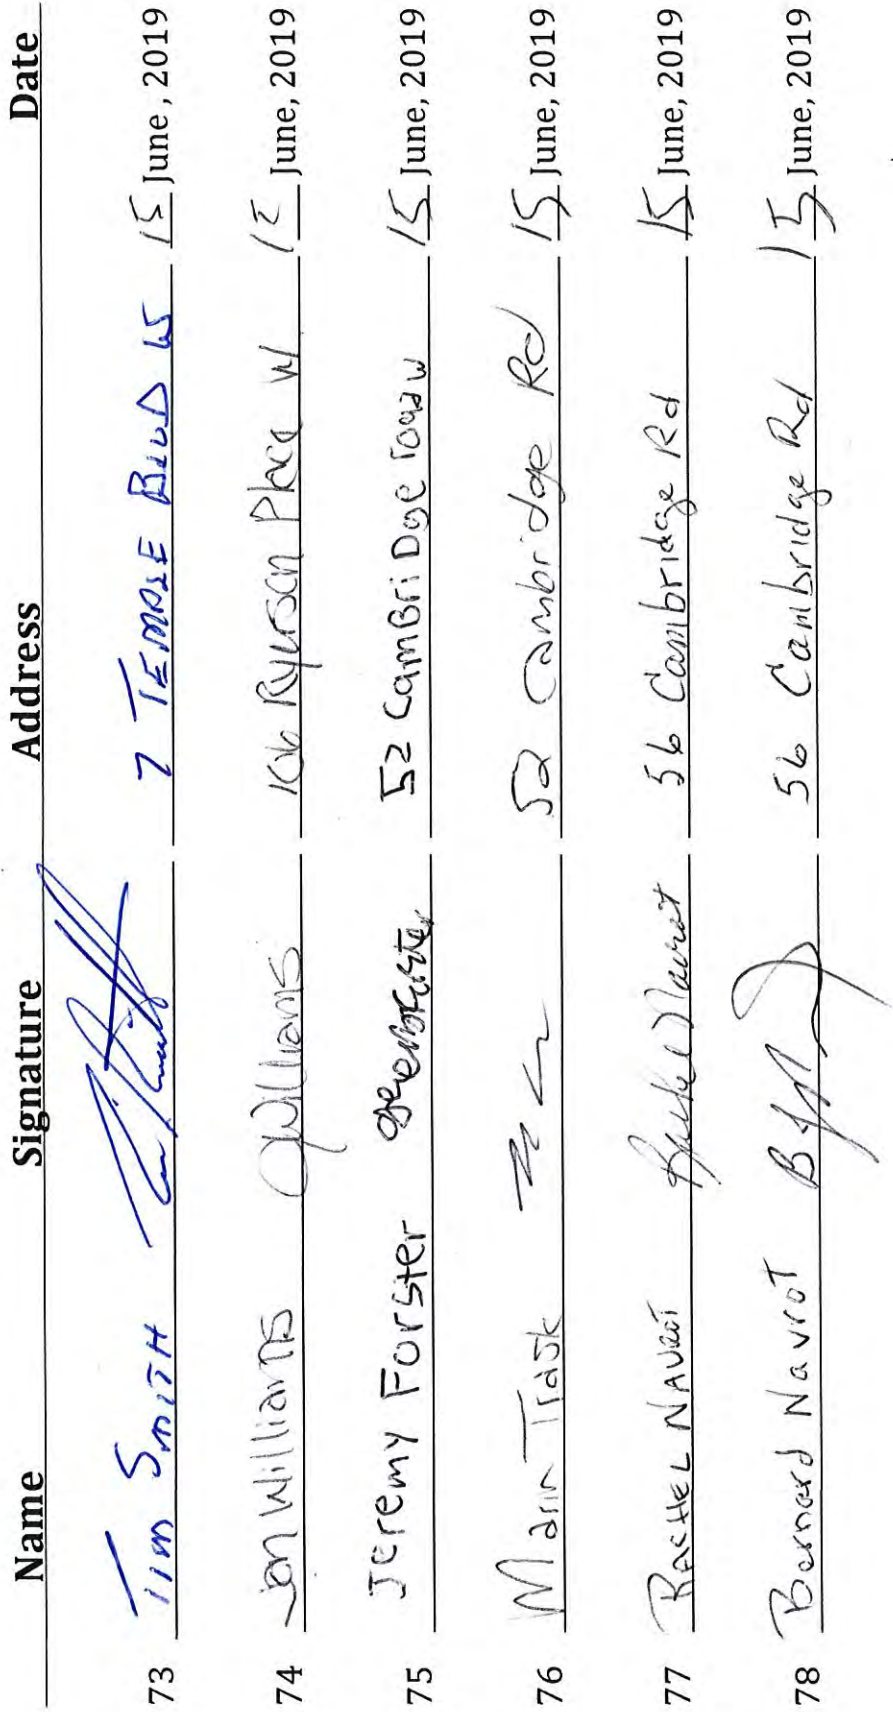 Name Signature Address Date
73 Tim Smith 7 Temple Blvd W 15 June, 2019
74 Jon Williams JWilliams Ryerson Place W 15 June, 2019
75 Jeremy Forster 52 CamBriDge W 15 June, 2019
76 Trask 52 Cambridge Rd 15 June, 2019
77 Rachel Navrot Rachel Navrot 56 Cambridge Rd 15 June, 2019
78 Bernard Navrot 56 Cambridge Rd 15 June, 2019